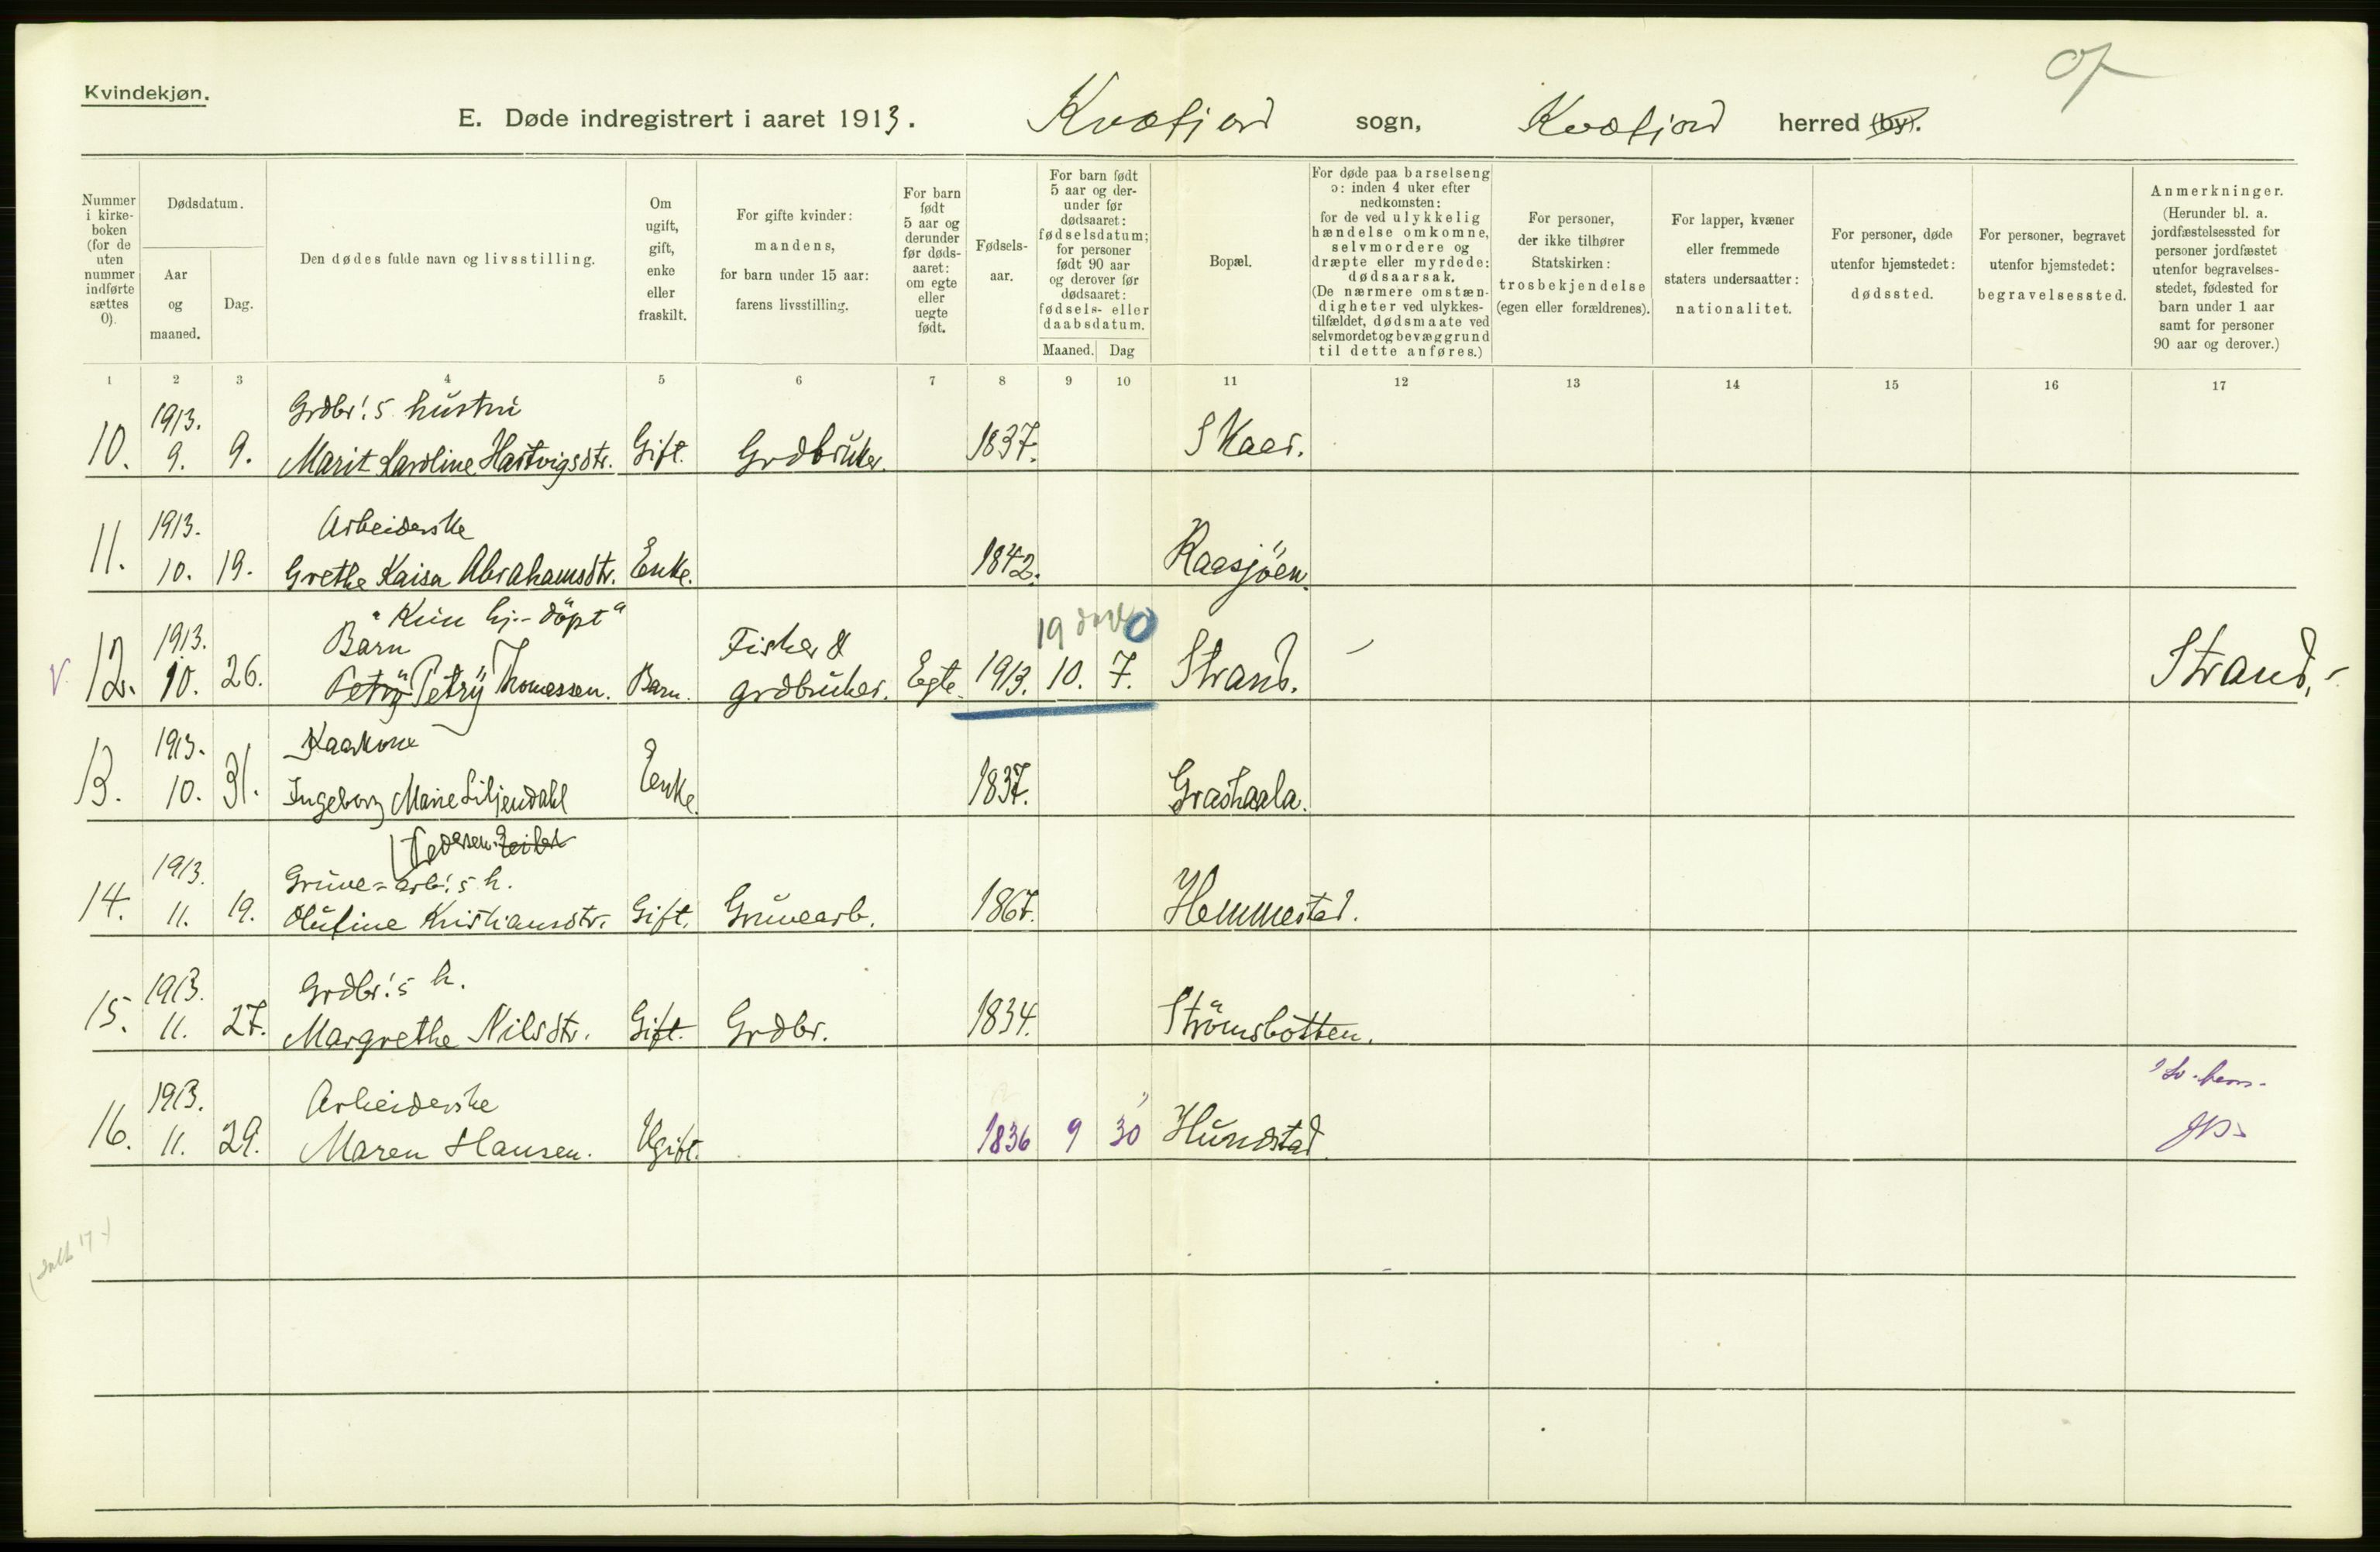 Kvindekjøn.
E. Døde indregistrert i aaret 1913. Kvæfjord sogn, Kvæfjord herred (by).
Nummer i kirke-boken (for de uten nummer indførte sættes 0).
Dødsdatum.
Aar og maaned.
Dag.
Den dødes fulde navn og livsstilling.
Om ugift, gift, enke eller fraskilt.
For gifte kvinder: mandens, for barn under 15 aar: farens livsstilling.
For barn født 5 aar og derunder før døds-aaret: om egte eller uegte født.
Fødsels-aar.
For barn født 5 aar og der-under før dødsaaret: fødselsdatum; for personer født 90 aar og derover før dødsaaret: fødsels- eller daabsdatum.
Maaned. Dag
Bopæl.
For døde paa barselseng ɔ: inden 4 uker efter nedkomsten: for de ved ulykkelig hændelse omkomne, selvmordere og dræpte eller myrdede: dødsaarsak. (De nærmere omstæn-digheter ved ulykkes-tilfældet, dødsmaate ved selvmordet og bevæggrund til dette anføres.)
For personer, der ikke tilhører Statskirken: trosbekjendelse (egen eller forældrenes).
For lapper, kvæner eller fremmede staters undersaatter: nationalitet.
For personer, døde utenfor hjemstedet: dødssted.
For personer, begravet utenfor hjemstedet: begravelsessted.
Anmerkninger. (Herunder bl. a. jordfæstelsessted for personer jordfæstet utenfor begravelses-stedet, fødested for barn under 1 aar samt for personer 90 aar og derover.)
1 2 3 4 5 6 7 8 9 10 11 12 13 14 15 16 17
1913. Grdbr.'s hustru
10. 9. 9. Marit Karoline Hartvigsdtr. Gift. Grdbruker. 1837. Skaar.
1913. Arbeiderske
11. 10. 19. Grethe Kaisa Abrahamsdtr. Enke. 1842. Raasjöen.
"Kun hj.-döpt"
1913. Barn Fisker & 19 0
12. 10. 26. Petrÿ Petrÿ Thomassen. Barn. grdbruker. Egte. 1913. 10. 7. Strand. Strand.
1913. Kaarkone
13. 10. 31. Ingeborg Marie Liljendahl Enke. 1837. Grashaala.
Pedersen
1913. Gruve=arb.'s h.
14. 11. 19. Olufine Kristiansdtr. Gift. Gruvearb. 1867. Hemmestad.
1913. Grdbr.'s h.
15. 11. 27. Margrethe Nilsdtr. Gift. Grdbr. 1834. Strömsbotten.
1913. Arbeiderske
16. 11. 29. Maren Hansen. Ugift. 1836 9 30 Hundstad.